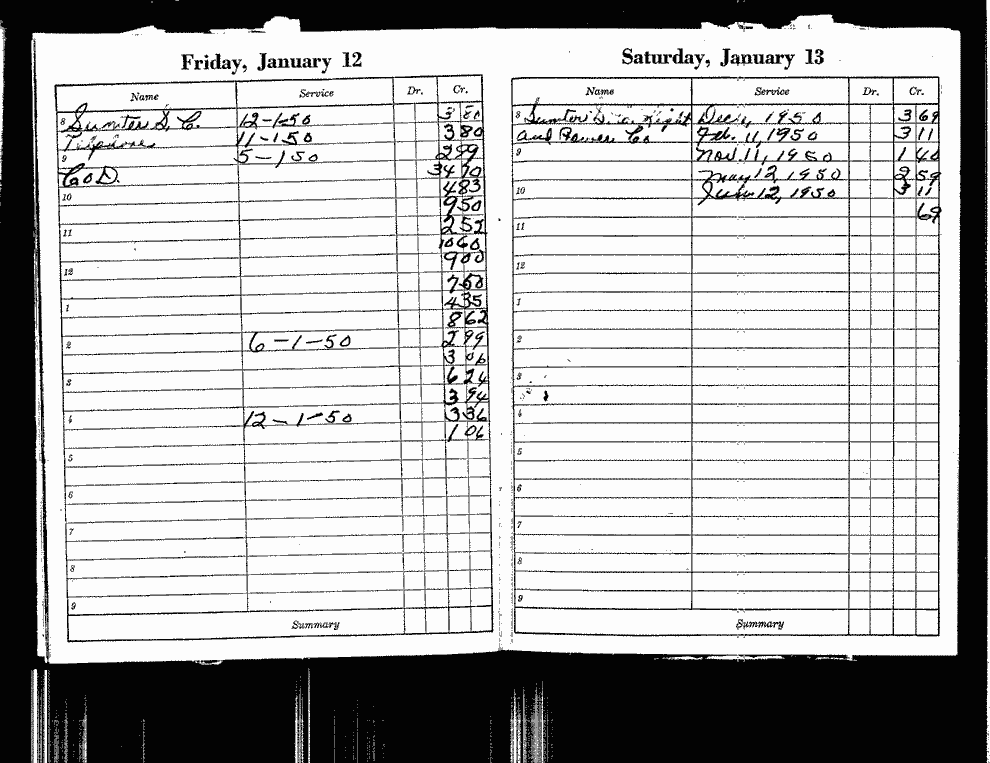 Friday, January 12
Name Service Dr. Cr.
8 Sumter S, C. 12-1-50 3 80
Telephone 11-1-50 3 80
9 5-1-50 2 99
C.O.D. 34 70
10 4 83
9 50
11 2 52
10 60
12 9 00
7 50
1 4 35
8 62
2 6-1-50 2 99
3 06
3 6 24
3 94
4 12-1-50 3 36
1 06
5
6
7
8
9
Summary
Saturday, January 13
Name Service Dr. Cr.
8 Sumter S. Dec 1, 1950 3 69
and Power Co Feb. 11, 1950 3 11
9 Nov. 11, 1950 1 40
May 12, 1950 2 59
10 June 12, 1950 3 11
69
11
12
1
2
3
4
5
6
7
8
9
Summary